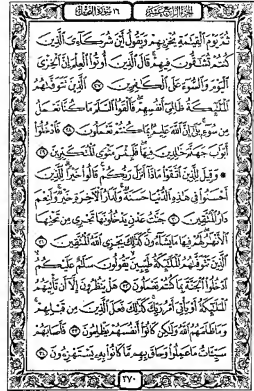 الجزء الرابع عشر ١٦ سورة النحل
ثُمَّ يَوْمَ الْقِيَٰمَةِ يُخْزِيهِمْ وَيَقُولُ أَيْنَ شُرَكَآءِىَ الَّذِينَ
كُنتُمْ تُشَٰٓقُّونَ فِيهِمْ قَالَ الَّذِينَ أُوتُوا الْعِلْمَ إِنَّ الْخِزْىَ
الْيَوْمَ وَالسُّوٓءَ عَلَى الْكَٰفِرِينَ ٢٧ الَّذِينَ تَتَوَفَّىٰهُمُ
الْمَلَٰٓئِكَةُ ظَالِمِىٓ أَنفُسِهِمْ فَأَلْقَوُا السَّلَمَ مَا كُنَّا نَعْمَلُ
مِن سُوٓءٍ بَلَىٰٓ إِنَّ اللَّهَ عَلِيمٌ بِمَا كُنتُمْ تَعْمَلُونَ ٢٨ فَادْخُلُوٓا
أَبْوَٰبَ جَهَنَّمَ خَٰلِدِينَ فِيهَا فَلَبِئْسَ مَثْوَى الْمُتَكَبِّرِينَ ٢٩
۞ وَقِيلَ لِلَّذِينَ اتَّقَوْا مَاذَآ أَنزَلَ رَبُّكُمْ قَالُوا خَيْرًا لِّلَّذِينَ
أَحْسَنُوا فِى هَٰذِهِ الدُّنْيَا حَسَنَةٌ وَلَدَارُ الْأَخِرَةِ خَيْرٌ وَلَنِعْمَ
دَارُ الْمُتَّقِينَ ٣٠ جَنَّٰتُ عَدْنٍ يَدْخُلُونَهَا تَجْرِى مِن تَحْتِهَا
الْأَنْهَٰرُ لَهُمْ فِيهَا مَا يَشَآءُونَ كَذَٰلِكَ يَجْزِى اللَّهُ الْمُتَّقِينَ ٣١
الَّذِينَ تَتَوَفَّىٰهُمُ الْمَلَٰٓئِكَةُ طَيِّبِينَ يَقُولُونَ سَلَٰمٌ عَلَيْكُمُ
ادْخُلُوا الْجَنَّةَ بِمَا كُنتُمْ تَعْمَلُونَ ٣٢ هَلْ يَنظُرُونَ إِلَّآ أَن تَأْتِيَهُمُ
الْمَلَٰٓئِكَةُ أَوْ يَأْتِىَ أَمْرُ رَبِّكَ كَذَٰلِكَ فَعَلَ الَّذِينَ مِن قَبْلِهِمْ
وَمَا ظَلَمَهُمُ اللَّهُ وَلَٰكِن كَانُوٓا أَنفُسَهُمْ يَظْلِمُونَ ٣٣ فَأَصَابَهُمْ
سَيِّـَٔاتُ مَا عَمِلُوا وَحَاقَ بِهِم مَّا كَانُوا بِهِۦ يَسْتَهْزِءُونَ ٣٤
٢٧٠